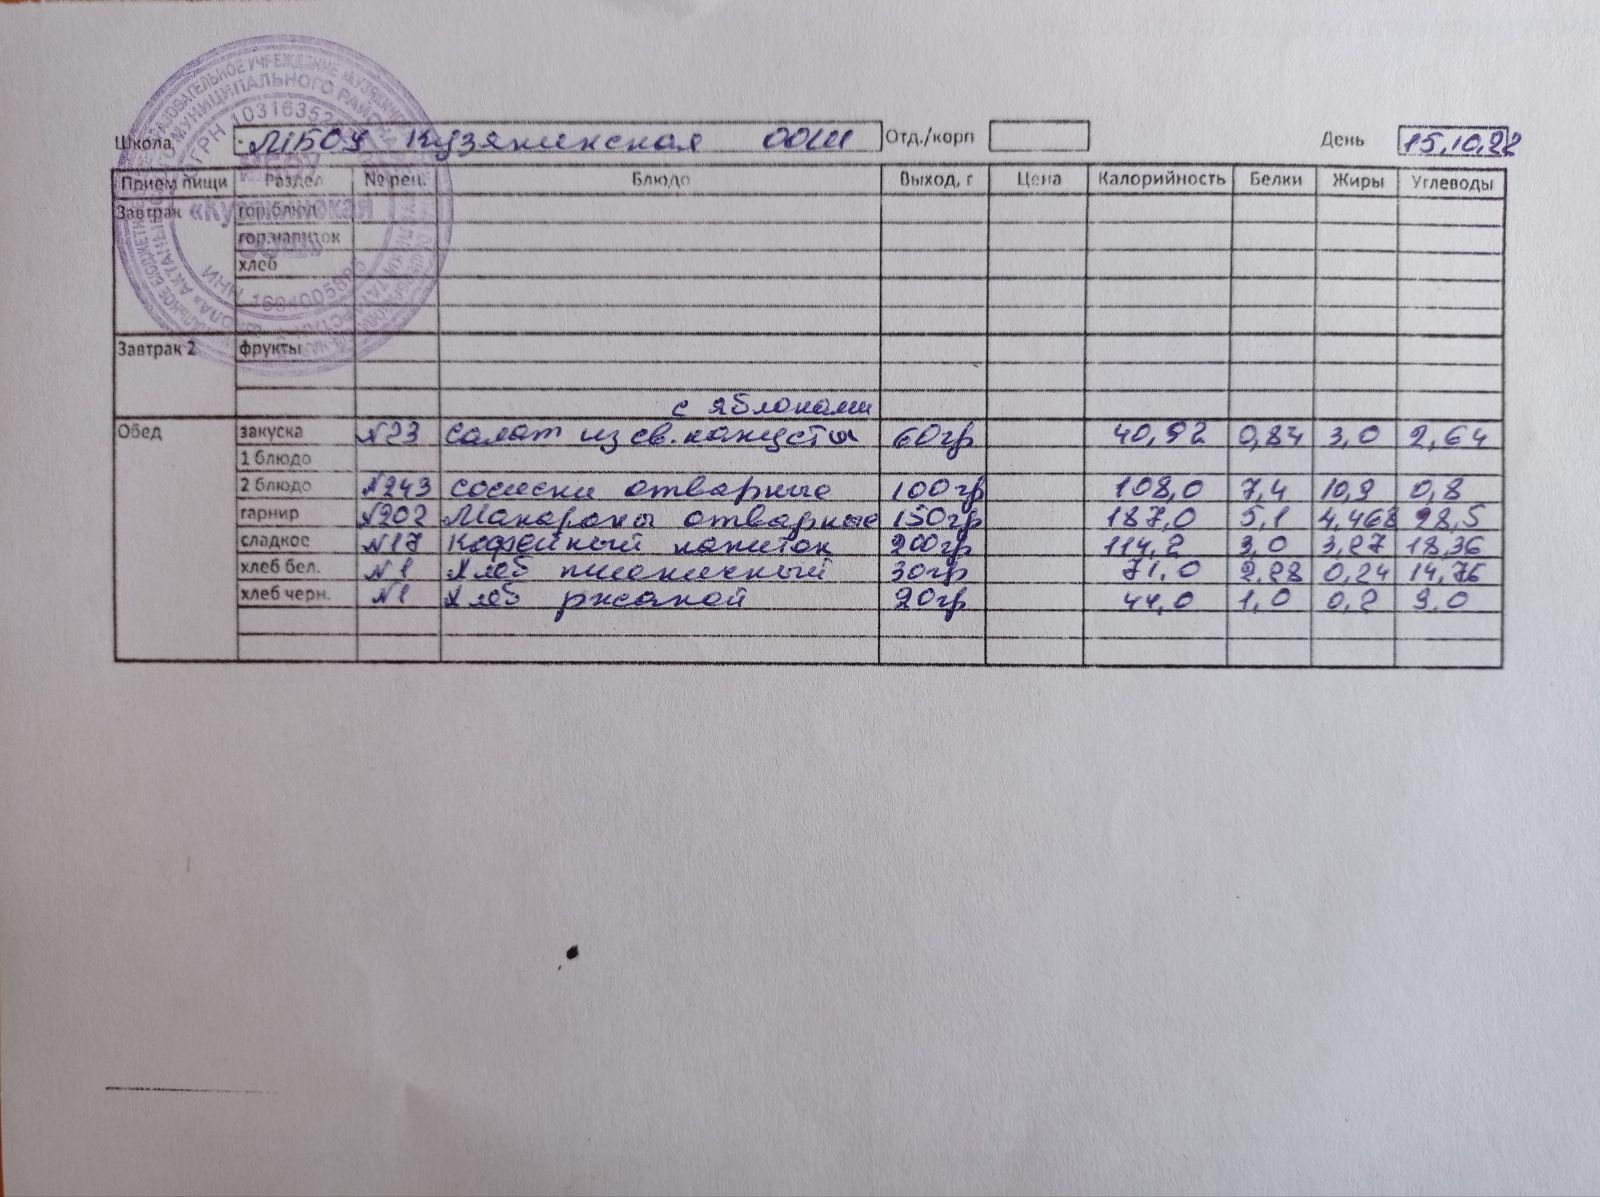 Школа МБОУ Кузякинская ООШ Отд./корп День 15.10.22
Прием пищи Раздел № рец. Блюдо Выход, г Цена Калорийность Белки Жиры Углеводы
Завтрак гор.блюдо
гор.напиток
хлеб
Завтрак 2 фрукты
с яблоками
Обед закуска №23 Салат из св. капусты 60гр 40,92 0,84 3,0 2,64
1 блюдо
2 блюдо №243 сосиски отварные 100гр 108,0 7,4 10,9 0,8
гарнир №202 Макароны отварные 150гр 187,0 5,1 4,468 28,5
сладкое №17 Кофейный напиток 200гр 114,2 3,0 3,27 18,36
хлеб бел. №1 Хлеб пшеничный 30гр 71,0 2,28 0,24 14,76
хлеб черн. №1 Хлеб ржаной 20гр 44,0 1,0 0,2 9,0
«Кузякинская